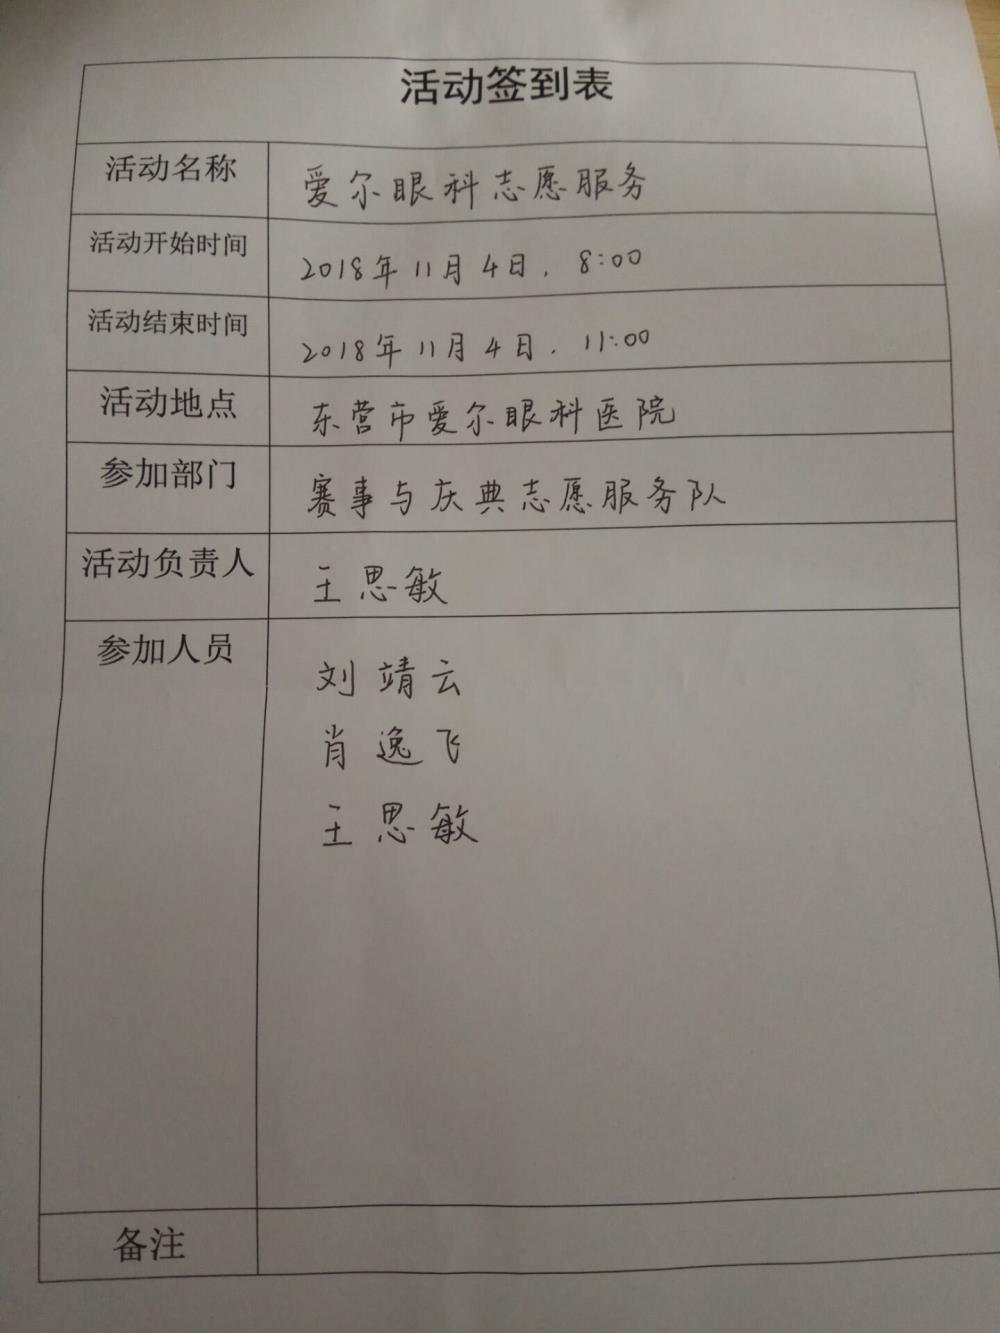 活动签到表
活动名称 爱尔眼科志愿服务
活动开始时间 2018年11月4日，8:00
活动结束时间 2018年11月4日，11:00
活动地点 东营市爱尔眼科医院
参加部门 赛事与庆典志愿服务队
活动负责人 王思敏
参加人员 刘靖云
肖逸飞
王思敏
备注